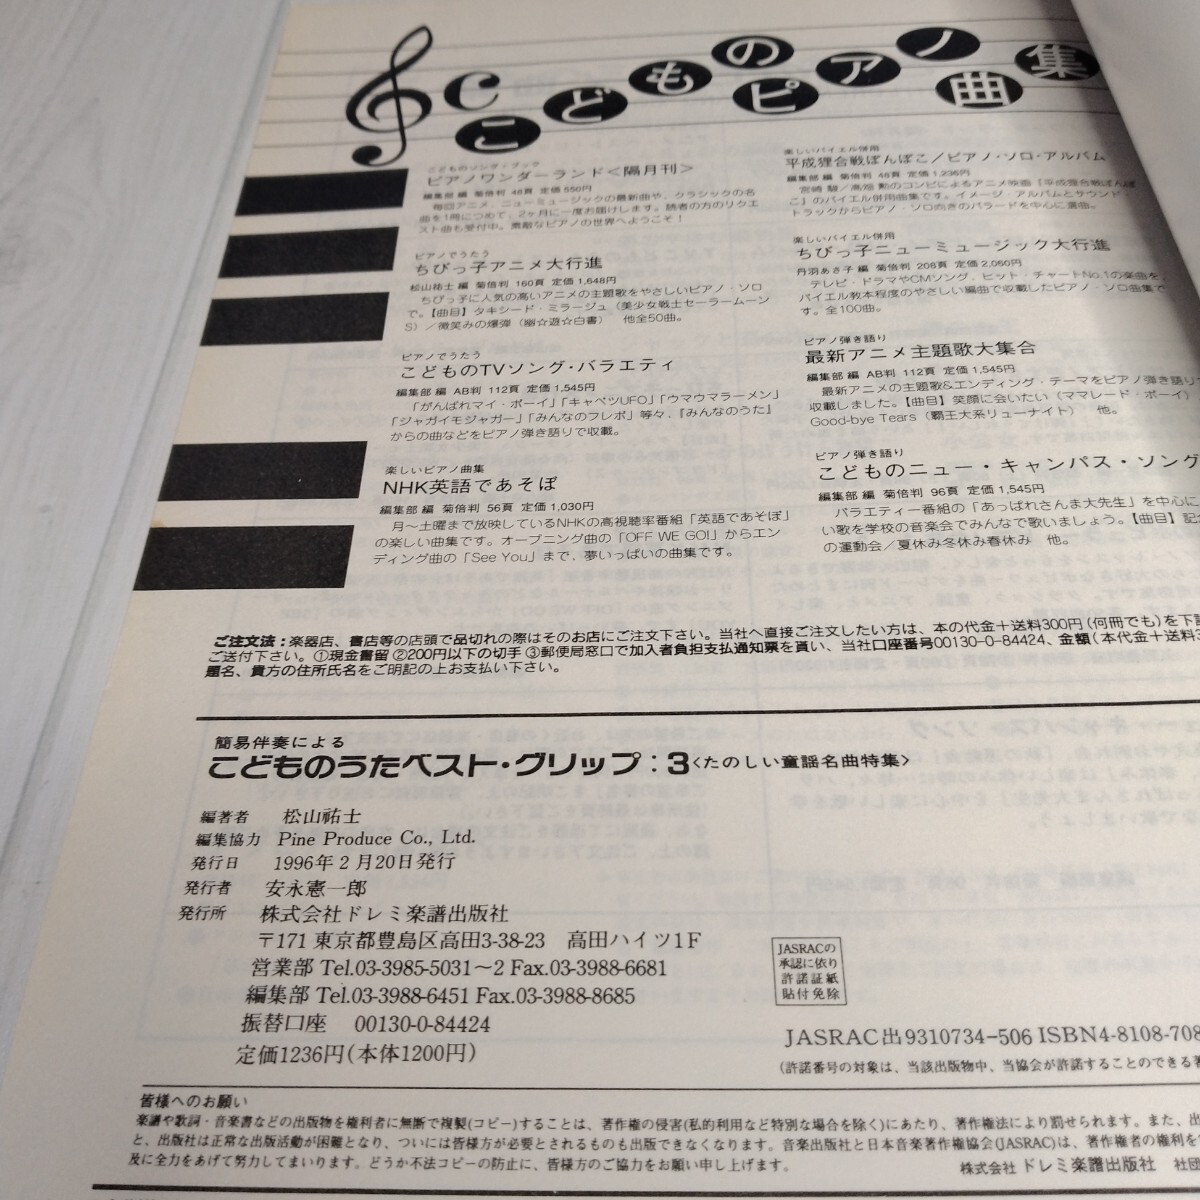 こどものピアノ曲集
こどものソング・ブック
ピアノワンダーランド<隔月刊>
編集部 編 菊倍判 48頁 定価 550円
毎回アニメ、ニューミュージックの最新曲や、クラシックの名
曲を1冊につめて、2ヶ月に一度お届けします。読者の方のリクエ
スト曲も受付中。素敵なピアノの世界へようこそ！
ピアノでうたう
ちびっ子アニメ大行進
松山祐士 編 菊倍判 160頁 定価 1,648円
ちびっ子に人気の高いアニメの主題歌をやさしいピアノ・ソロ
で。【曲目】タキシード・ミラージュ（美少女戦士セーラームーン
S）／微笑みの爆弾（幽☆遊☆白書） 他全50曲。
ピアノでうたう
こどものTVソング・バラエティ
編集部 編 AB判 112頁 定価 1,545円
「がんばれマイ・ボーイ」「キャベツUFO」「ウマウマラーメン」
「ジャガイモジャガー」「みんなのフレボ」等々、『みんなのうた』
からの曲などをピアノ弾き語りで収載。
楽しいピアノ曲集
NHK英語であそぼ
編集部 編 菊倍判 56頁 定価 1,030円
月～土曜まで放映しているNHKの高視聴率番組「英語であそぼ」
の楽しい曲集です。オープニング曲の「OFF WE GO!」からエン
ディング曲の「See You」まで、夢いっぱいの曲集です。
楽しいバイエル併用
平成狸合戦ぽんぽこ／ピアノ・ソロ・アルバム
編集部 編 菊倍判 48頁 定価 1,236円
宮崎 駿／高畑 勲のコンビによるアニメ映画『平成狸合戦ぽんぽ
こ』のバイエル併用曲集です。イメージ・アルバムとサウンド・
トラックからピアノ・ソロ向きのバラードを中心に選曲。
楽しいバイエル併用
ちびっ子ニューミュージック大行進
丹羽あさ子 編 菊倍判 208頁 定価 2,060円
テレビ・ドラマやCMソング、ヒット・チャートNo.1の楽曲を、
バイエル教本程度のやさしい編曲で収載したピアノ・ソロ曲集で
す。全100曲。
ピアノ弾き語り
最新アニメ主題歌大集合
編集部 編 AB判 112頁 定価 1,545円
最新アニメの主題歌&エンディング・テーマをピアノ弾き語りで
収載しました。【曲目】笑顔に会いたい（ママレード・ボーイ）
Good-bye Tears（覇王大系リューナイト） 他。
ピアノ弾き語り
こどものニュー・キャンパス・ソング
編集部 編 菊倍判 96頁 定価 1,545円
バラエティー番組の「あっぱれさんま大先生」を中心に
い歌を学校の音楽会でみんなで歌いましょう。【曲目】記
の運動会／夏休み冬休み春休み 他。
ご注文法：楽器店、書店等の店頭で品切れの際はそのお店にご注文下さい。当社へ直接ご注文したい方は、本の代金＋送料300円（何冊でも）を下記
ご送付下さい。①現金書留 ②200円以下の切手 ③郵便局窓口で加入者負担支払通知票を貰い、当社口座番号00130-0-84424、金額（本代金＋送料3
題名、貴方の住所氏名をご明記の上お支払い下さい。
簡易伴奏による
こどものうたベスト・グリップ：3<たのしい童謡名曲特集>
編著者 松山祐士
編集協力 Pine Produce Co., Ltd.
発行日 1996年2月20日発行
発行者 安永憲一郎
発行所 株式会社ドレミ楽譜出版社
〒171 東京都豊島区高田3-38-23 高田ハイツ1F
営業部 Tel.03-3985-5031～2 Fax.03-3988-6681
編集部 Tel.03-3988-6451 Fax.03-3988-8685
振替口座 00130-0-84424
定価1236円(本体1200円)
JASRACの
承認に依り
許諾証紙
貼付免除
JASRAC出9310734-506 ISBN4-8108-708
(許諾番号の対象は、当該出版物中、当協会が許諾することのできる著
皆様へのお願い
楽譜や歌詞・音楽書などの出版物を権利者に無断で複製(コピー)することは、著作権の侵害(私的利用など特別な場合を除く)にあたり、著作権法により罰せられます。また、出
と、出版社は正常な出版活動が困難となり、ついには皆様方が必要とされるものも出版できなくなります。音楽出版社と日本音楽著作権協会(JASRAC)は、著作権者の権利を
及に全力をあげて努力してまいります。どうか不法コピーの防止に、皆様方のご協力をお願い申し上げます。
株式会社 ドレミ楽譜出版社 社団